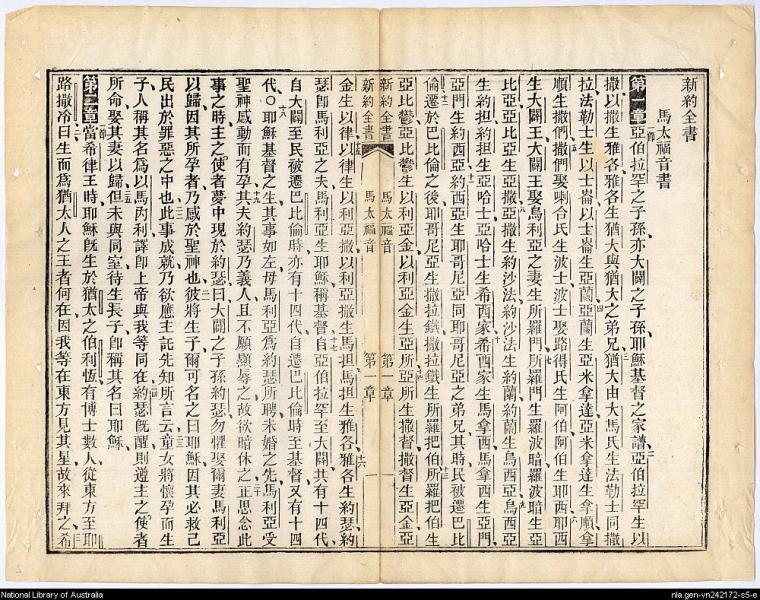 新約全書
馬太福音書
第一章亞伯拉罕之子孫亦大闢之子孫耶穌基督之家譜亞伯拉罕生以
撒以撒生雅各雅各生猶大與猶大之弟兄猶大由大馬氏生法勒士同撒
拉法勒士生以士崙以士崙生亞蘭亞蘭生亞米拿達亞米拿達生拿順拿
順生撒們撒們娶喇合氏生波士波士娶路得氏生阿伯阿伯生耶西耶西
生大闢王大闢王娶烏利亞之妻生所羅門所羅門生羅波暗羅波暗生亞
比亞亞比亞生亞撒亞撒生約沙法約沙法生約蘭約蘭生烏西亞烏西亞
生約担約担生亞哈士亞哈士生希西家希西家生馬拿西馬拿西生亞門
亞門生約西亞約西亞生耶哥尼亞同耶哥尼亞之弟兄其時民被遷巴比
倫遷於巴比倫之後耶哥尼亞生撒拉鐵撒拉鐵生所羅把伯所羅把伯生
亞比鬱亞比鬱生以利亞金以利亞金生亞所亞所生撒督撒督生亞金亞
新約全書 馬太福音 第一章 一
新約全書 馬太福音 第一章
金生以律以律生以利亞撒以利亞撒生馬担馬担生雅各雅各生約瑟約
瑟卽馬利亞之夫馬利亞生耶穌稱基督自亞伯拉罕至大闢共有十四代
自大闢至民被遷巴比倫時亦有十四代自遷巴比倫時至基督又有十四
代〇耶穌基督之生其事如左母馬利亞爲約瑟所聘未婚之先馬利亞受
聖神感動而有孕其夫約瑟乃義人且不願顯辱之故欲暗休之正思念此
事之時主之使者夢中現於約瑟曰大闢之子孫約瑟勿懼娶爾妻馬利亞
以歸因其所孕者乃感於聖神也彼將生子爾可名之曰耶穌因其必救己
民出於罪惡之中也此事成就乃欲應主託先知所言云童女將懷孕而生
子人稱其名爲以馬內利譯卽上帝與我等同在約瑟旣醒則遵主之使者
所命娶其妻以歸但未與同室待生長子卽稱其名曰耶穌
第二章當希律王時耶穌旣生於猶太之伯利恆有博士數人從東方至耶
路撒冷曰生而爲猶太人之王者何在因我等在東方見其星故來拜之希
National Library of Australia
nla.gen-vn242172-s5-e